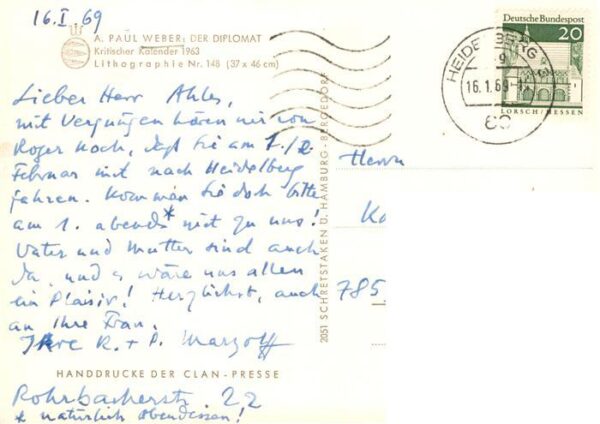 16.I.69
A. PAUL WEBER: DER DIPLOMAT
Kritischer Kalender 1963
Lithographie Nr. 148 (37 x 46 cm)
Lieber Herr Ahles,
mit Vergnügen hören wir von
Roger Koch, daß Sie am 1./2.
Februar mit nach Heidelberg
fahren. Kommen Sie doch bitte
am 1. abends* mit zu uns!
Vater und Mutter sind auch
da, und es wäre uns allen
ein Plaisir! Herzlichst, auch
an Ihre Frau.
Ihre R. + P. Marzolff
HANDDRUCKE DER CLAN-PRESSE
Rohrbacherstr. 22
* natürlich Abendessen!
2051 SCHRETSTAKEN U. HAMBURG-BERGEDORF
Deutsche Bundespost
20
LORSCH/HESSEN
HEIDELBERG
16.1.69
Herrn
Ka
785